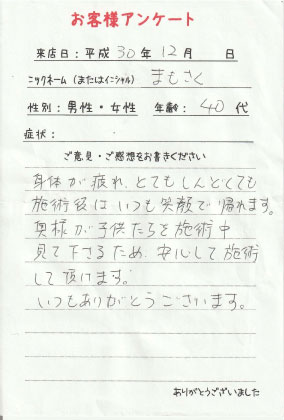 お客様アンケート
来店日：平成 30 年 12 月 日
ニックネーム（またはイニシャル） まもさく
性別：男性・女性 年齢： 40 代
症状：
ご意見・ご感想をお書きください
身体が疲れ、とてもしんどくても
施術後はいつも笑顔で帰れます。
奥様が子供たちを施術中
見て下さるため、安心して施術
して頂けます。
いつもありがとうございます。
ありがとうございました